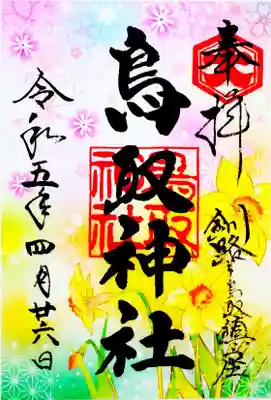 奉拝
釧路鳥取鎮座
鳥取神社
鳥取
神社
令和五年四月廿六日